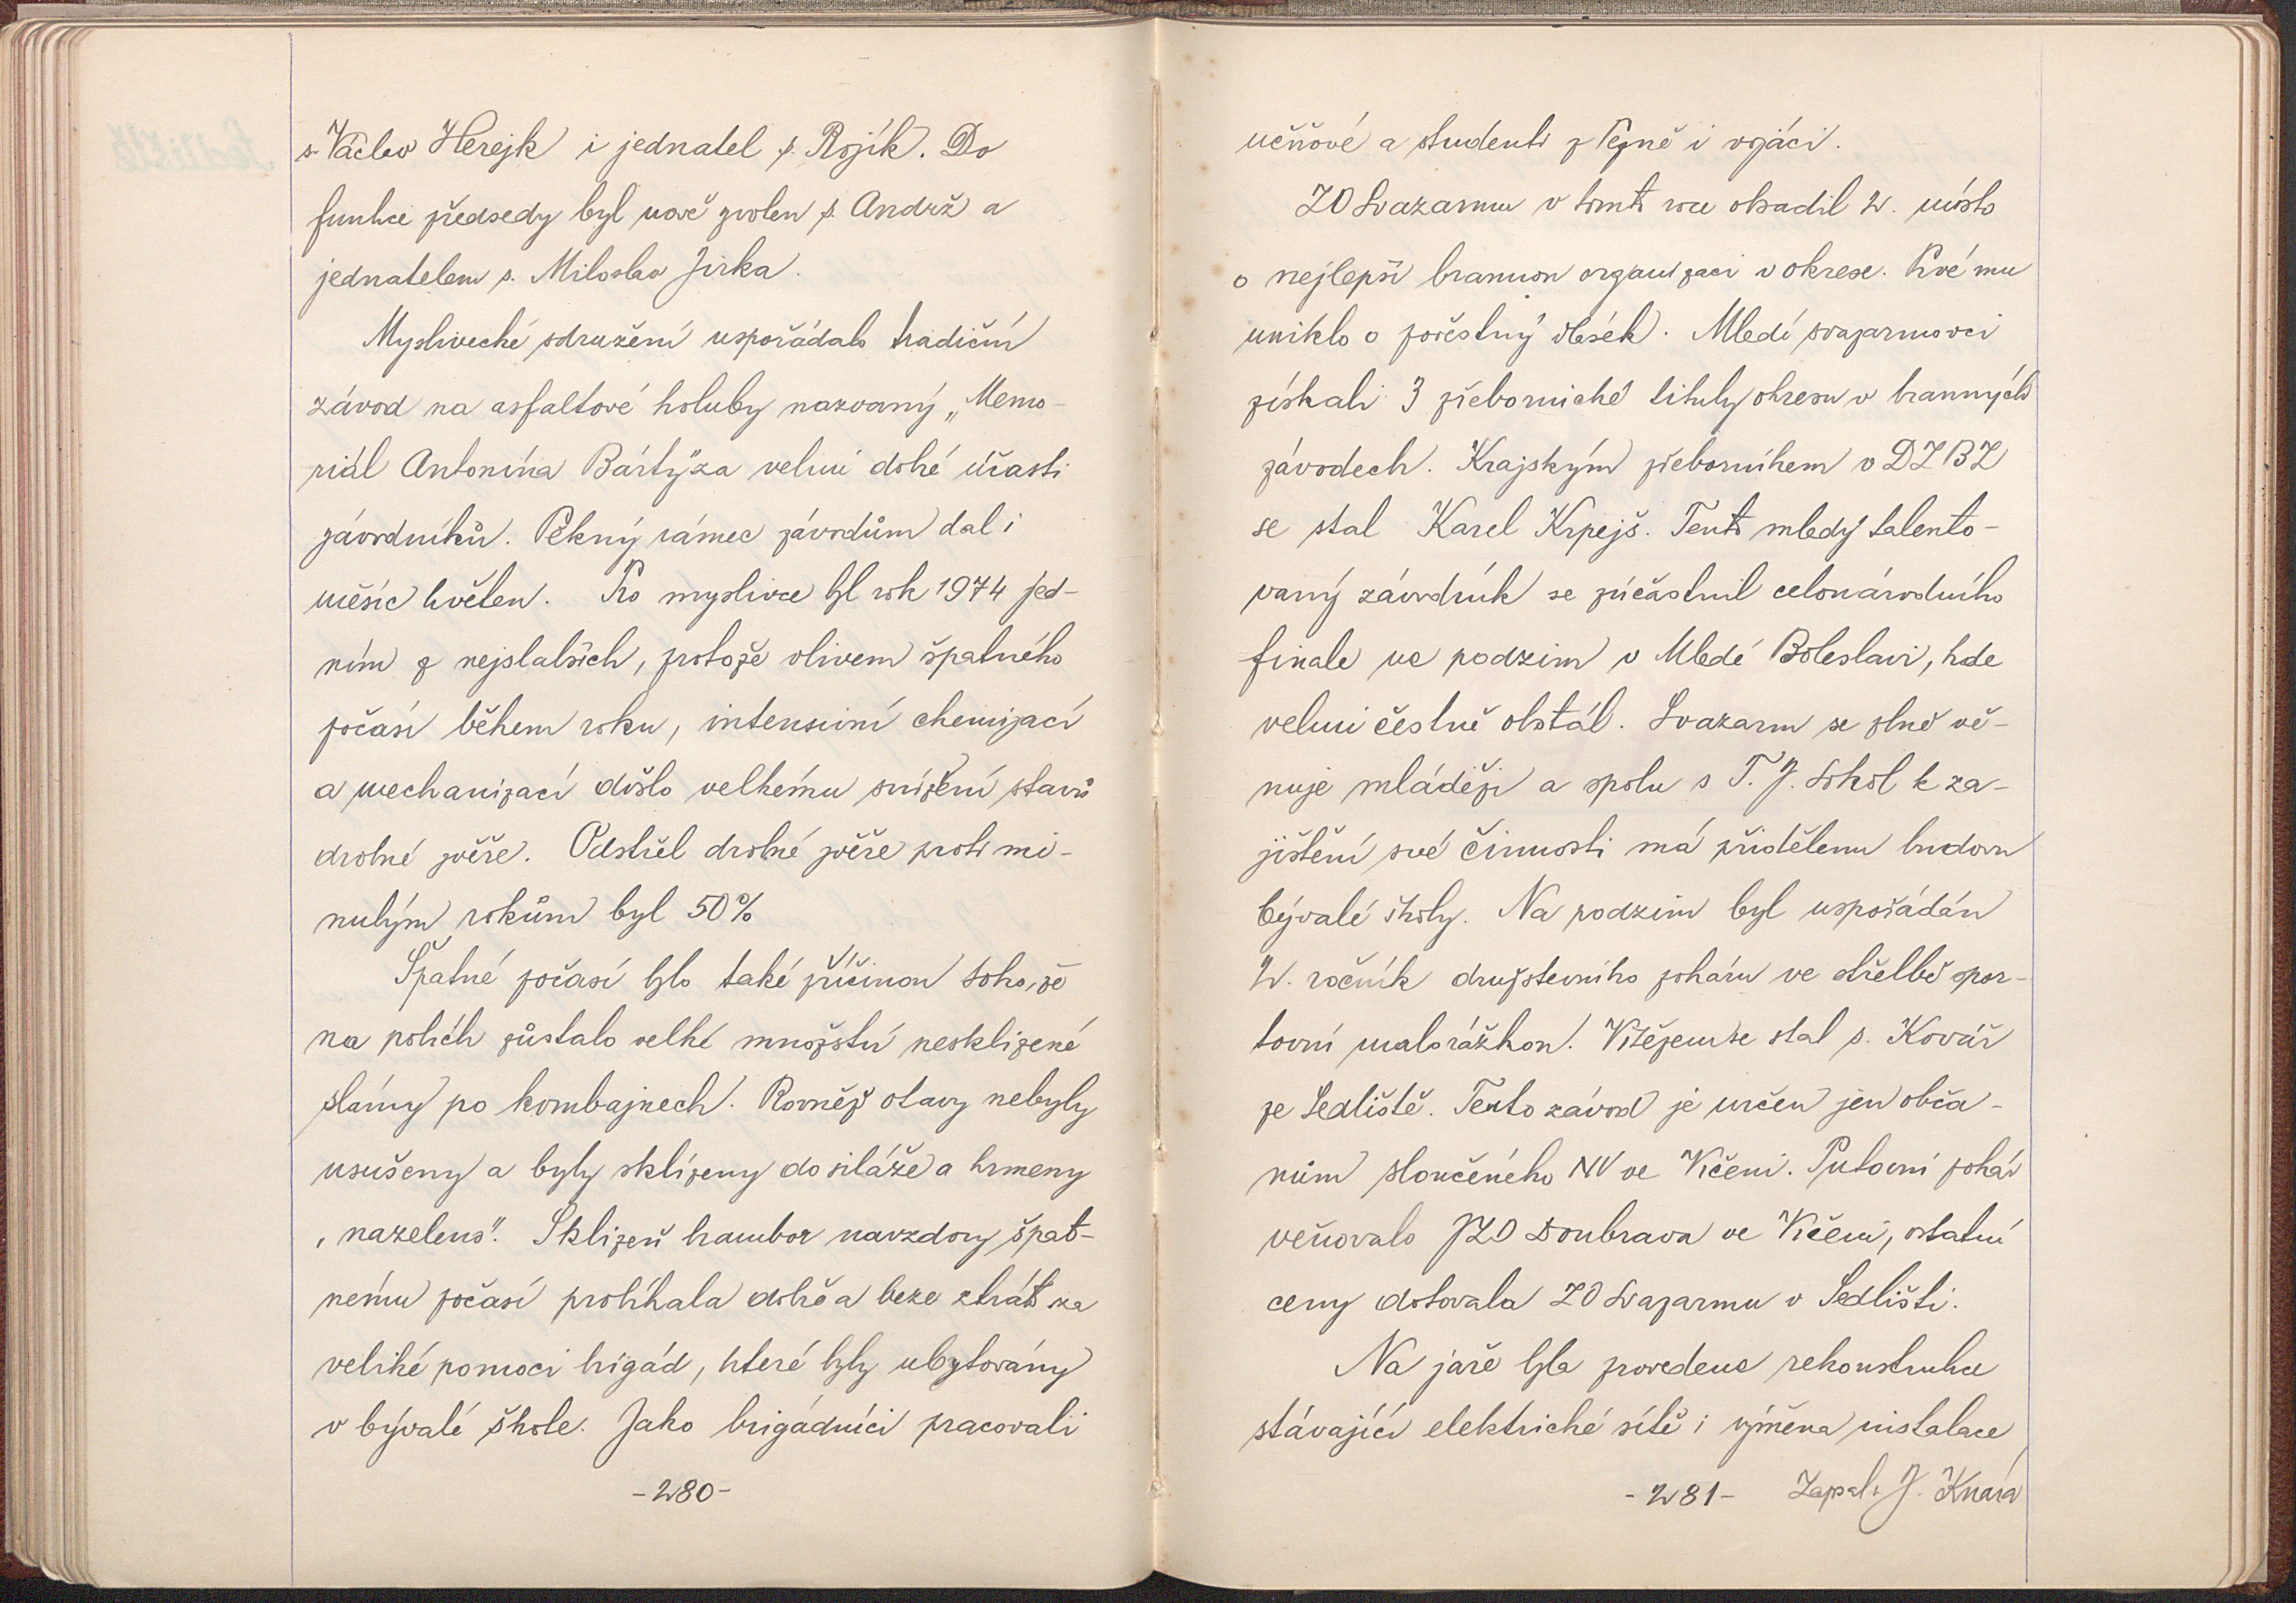 s. Václav Herejk i jednatel s. Rojík. Do
funkce předsedy byl nově zvolen s. Andrž a
jednatelem s. Miloslav Jirka.
Myslivecké sdružení uspořádalo tradiční
závod na asfaltové holuby nazvaný „Memo-
riál Antonína Bártýza velmi dobé účasti
závodníků. Pěkný rámec závodům dal i
měsíc květen. Pro myslivce byl rok 1974 jed-
ním z nejslabších, protože vlivem špatného
počasí během roku, intensivní chemizací
a mechanizací došlo velkému snížení stavů
drobné zvěře. Odstřel drobné zvěře proti mi-
nulým rokům byl 50%
Špatné počasí bylo také příčinou toho, že
na polích zůstalo velké množství nesklizené
slámy po kombajnech. Rovněž otavy nebyly
usušeny a byly sklizeny do siláže a krmeny
„nazeleno". Sklizeň brambor navzdory špat-
nému počasí probíhala dobře a beze ztrát za
veliké pomoci brigád, které byly ubytovány
v bývalé škole. Jako brigádníci pracovali
-280-
učňové a studenti z Týně i vojáci.
ZO Svazarmu v tomto roce obsadil 2. místo
o nejlepší brannou organizaci v okrese. Prvé mu
uniklo o pověstný vlásek. Mladí svazarmovci
získali 3 přebornické tituly okresu v branných
závodech. Krajským přeborníkem v DZBZ
se stal Karel Krpejš. Tento mladý talento-
vaný závodník se zúčastnil celonárodního
finale na podzim v Mladé Boleslavi, kde
velmi čestně obstál. Svazarm se plně vě-
nuje mládeži a spolu s T. J. Sokol k za-
jištění své činnosti má přidělenu budovu
bývalé školy. Na podzim byl uspořádán
2. ročník družstevního poháru ve střelbě spor-
tovní malorážkou. Vítězem se stal s. Kovář
ze Sedliště. Tento závod je určen jen obča-
nům sloučeného NV ve Vlčeni. Putovní pohár
věnovalo JZD Doubrava ve Vlčeni, ostatní
ceny dotovala ZO Svazarmu v Sedlišti.
Na jaře byla provedena rekonstrukce
stávající elektrické sítě i výměna instalace
-281- Zapsal: J.